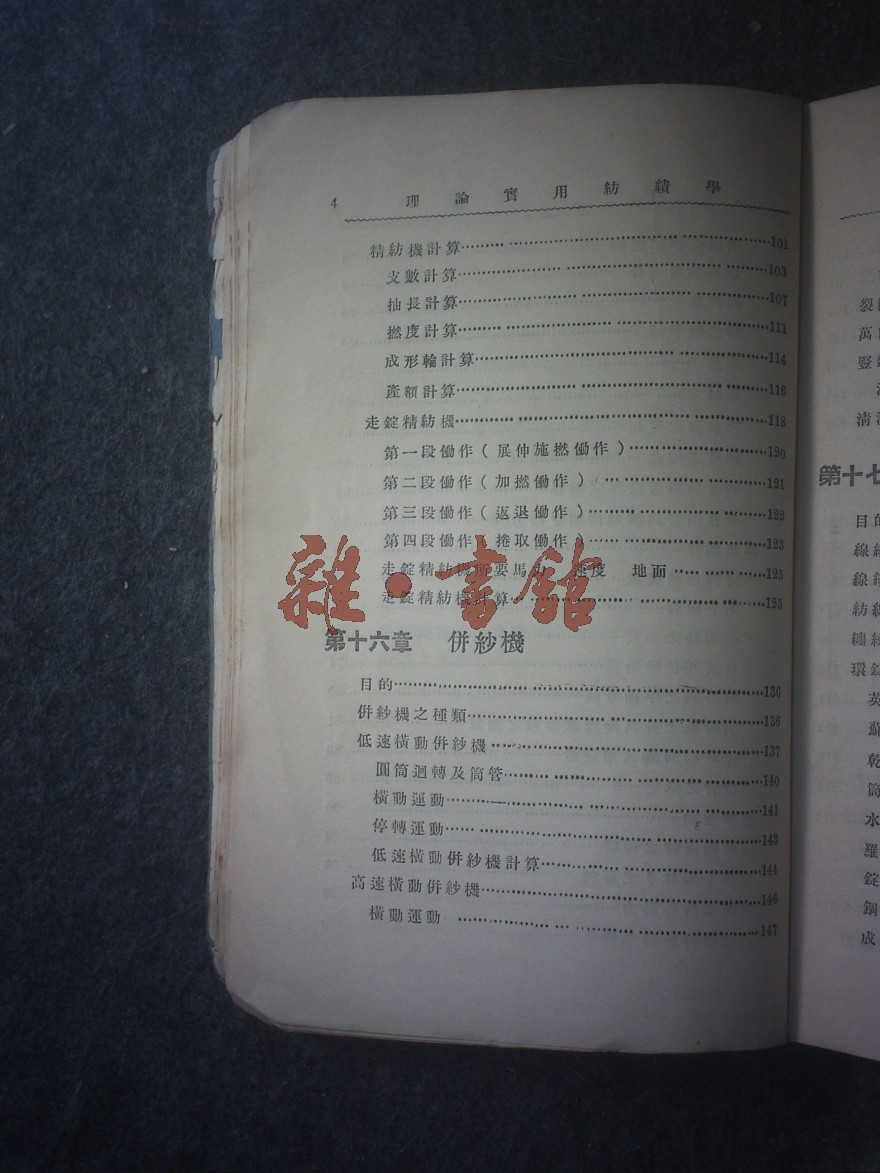 4 理論實用紡績學
精紡機計算……………………………101
支數計算……………………………103
抽長計算……………………………107
撚度計算……………………………111
成形輪計算……………………………114
產額計算……………………………116
走錠精紡機……………………………118
第一段働作(展伸施撚働作)………………120
第二段働作(加撚働作)………………121
第三段働作(返退働作)………………122
第四段働作(捲取働作)………………123
走錠精紡機所要馬力 速度 地面………………125
走錠精紡機計算……………………………125
雜·書舘
第十六章 併紗機
目的……………………………136
併紗機之種類……………………………136
低速橫動併紗機……………………………137
圓筒迴轉及筒管……………………………140
橫動運動……………………………141
停轉運動……………………………143
低速橫動併紗機計算……………………………144
高速橫動併紗機……………………………146
橫動運動……………………………147
萬
豎
清
第十七
目的
線
線
紡
纏
環錠
英
蘇
乾
筒
水
羅
錠
鋼
成